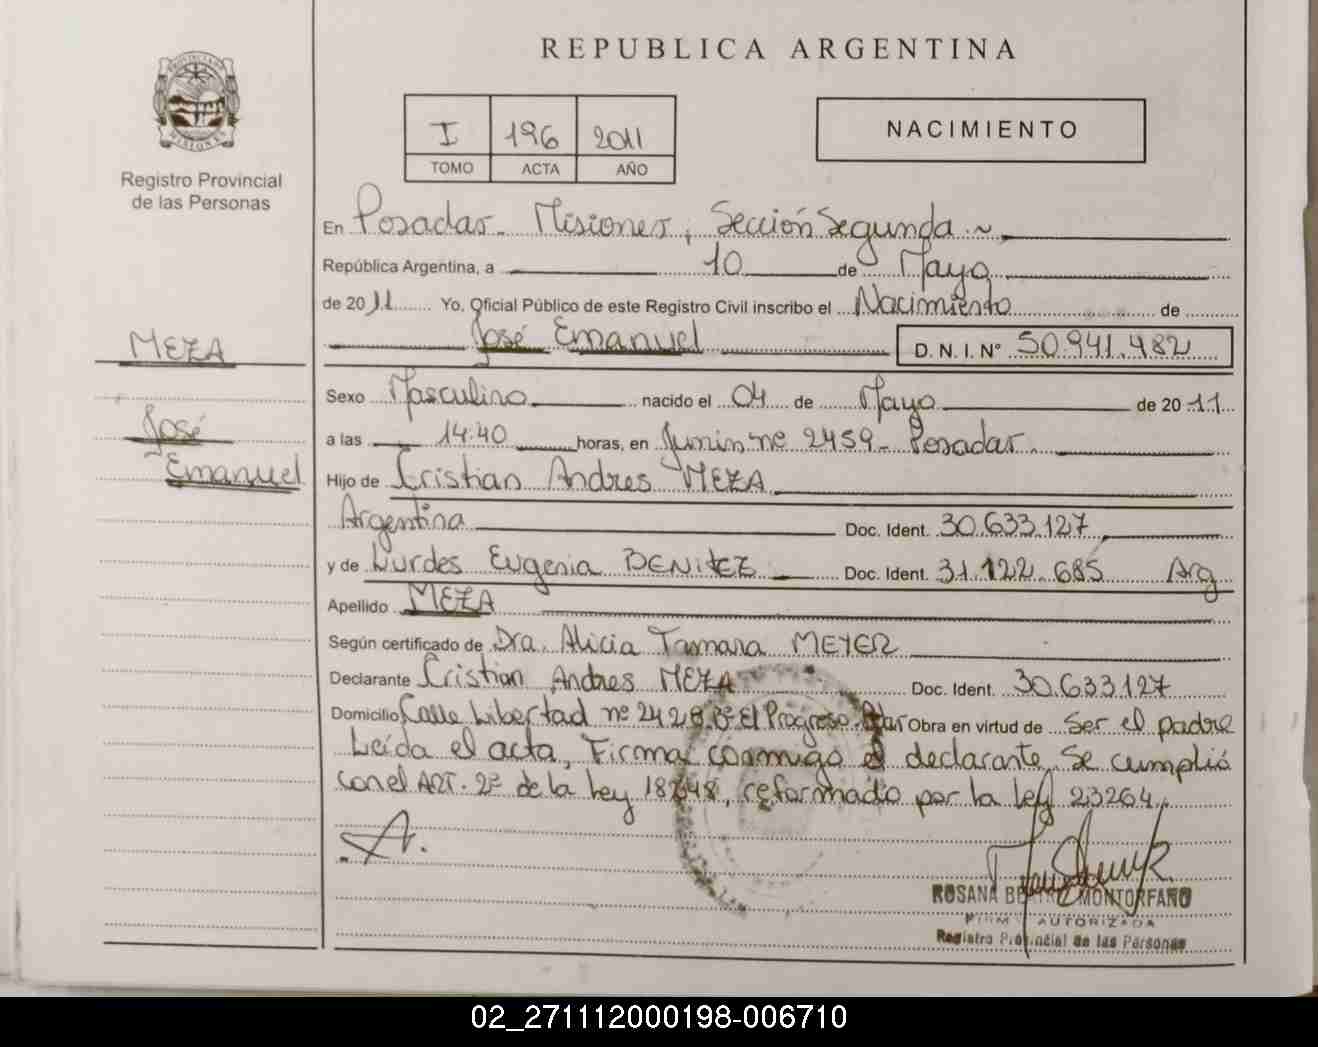 REPUBLICA ARGENTINA
I 196 2011
TOMO ACTA AÑO
NACIMIENTO
Registro Provincial
de las Personas
MEZA
José
Emanuel
En Posadas - Misiones, Sección Segunda
República Argentina, a 10 de Mayo
de 2011 Yo, Oficial Público de este Registro Civil inscribo el Nacimiento de
José Emanuel D. N. I. N° 50.941.482
Sexo Masculino nacido el 04 de Mayo de 2011
a las 14:40 horas, en Junin nº 2459 - Posadas
Hijo de Cristian Andres MEZA
Argentina Doc. Ident. 30.633.127
y de Lurdes Eugenia BENITEZ Doc. Ident. 31.122.685 Arg
Apellido MEZA
Según certificado de Dra. Alicia Tamara MEYER
Declarante Cristian Andres MEZA Doc. Ident. 30.633.127
Domicilio Calle Libertad nº 2428 Bº El Progreso Obra en virtud de Ser el padre
Leída el acta, Firma conmigo el declarante, Se cumplió
con el ART. 2º de la Ley 18248, reformado por la ley 23264,
ROSANA MONTORFANO
FIRMA AUTORIZADA
Registro Provincial de las Personas
02_271112000198-006710